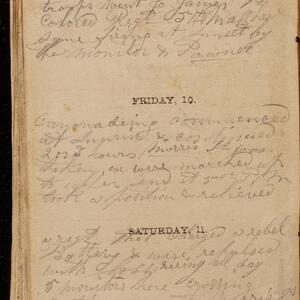 troops went to James
Colored Regt 54th Mass
some firing at sunset by
the monitor & Pawnee
FRIDAY, 10.
Canonading commenced
at Sunrise & continued
2 or 3 hours, Morris
taken, we were marched up
to upper end at 5 o'clock
took a position & relieved
SATURDAY, 11.
a regt that charged a rebel
Battery & were repulsed
with loss, firing all day
5 monitors here crossing